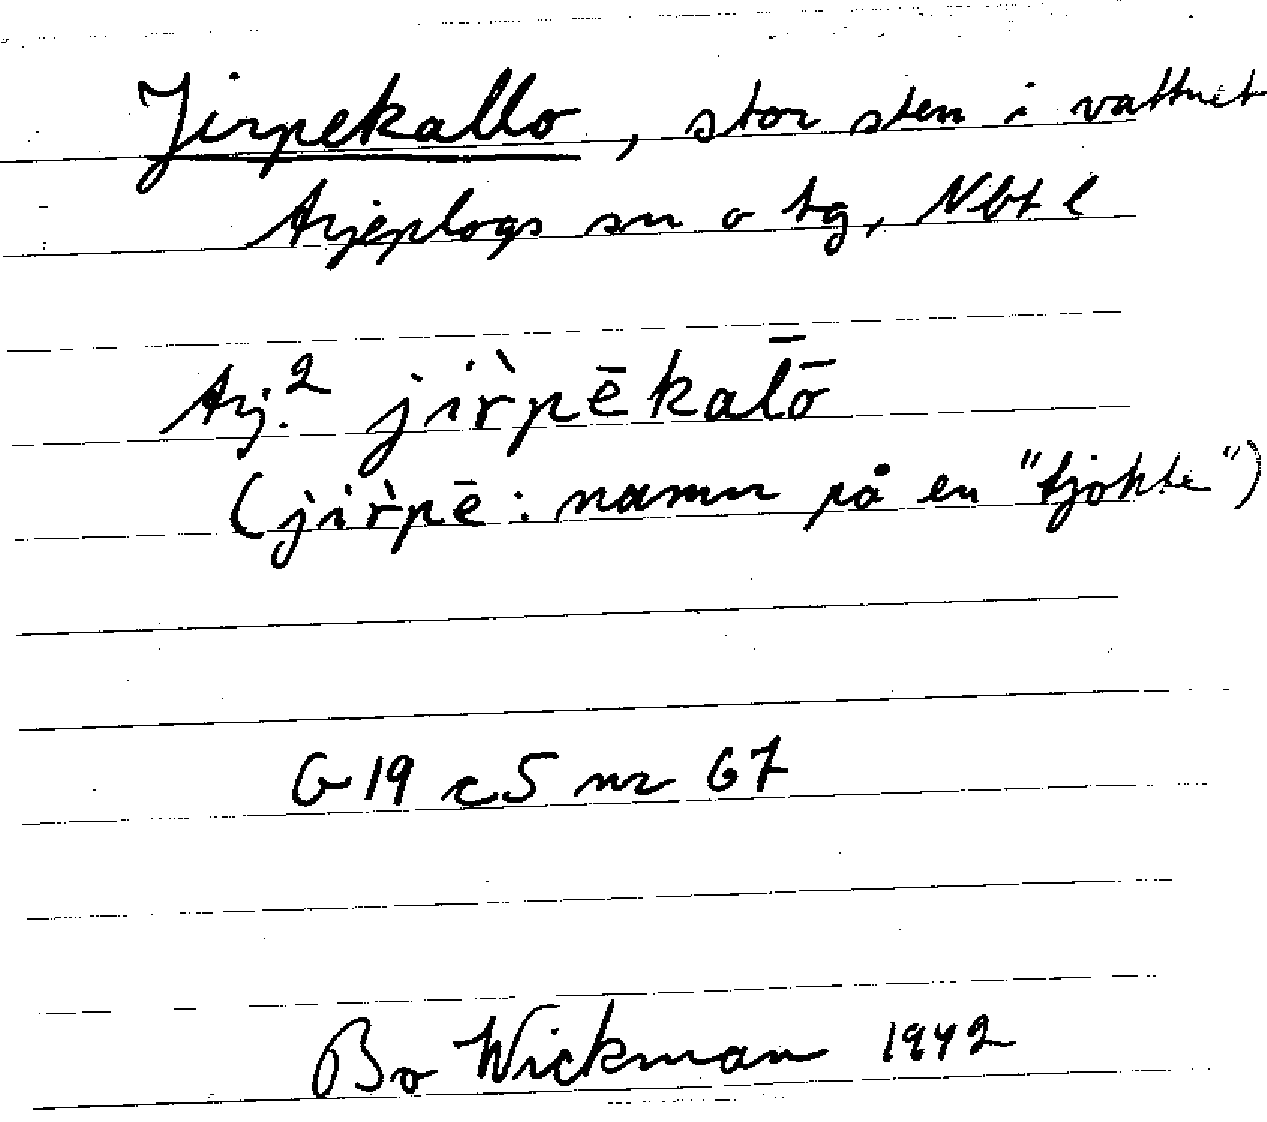 Jirpekallo, stor sten i vattnet
Arjeplogs sn o tg, Nbt l
Arj.² jir̀pēkal̄ō
(jir̀pē: namn på en "tjokte")
G 19 c 5 nr 67
Bo Wickman 1942